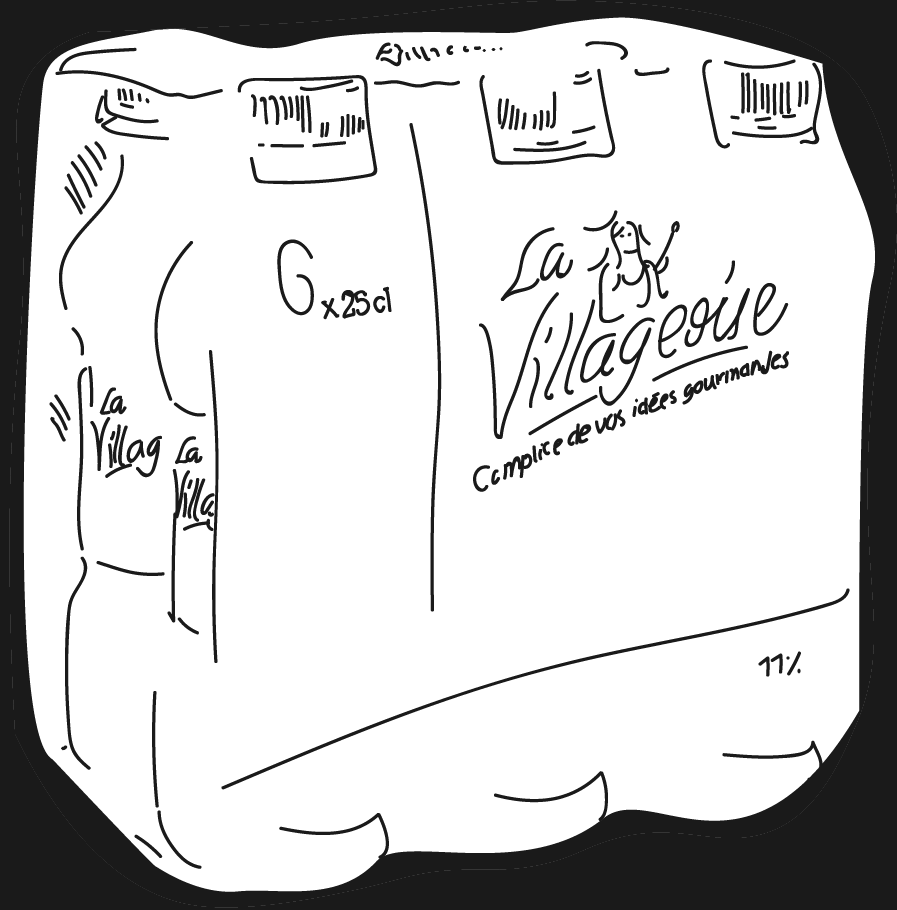 6 x 25cl
La
Villageoise
Complice de vos idées gourmandes
La
Villag
La
Villa
11%